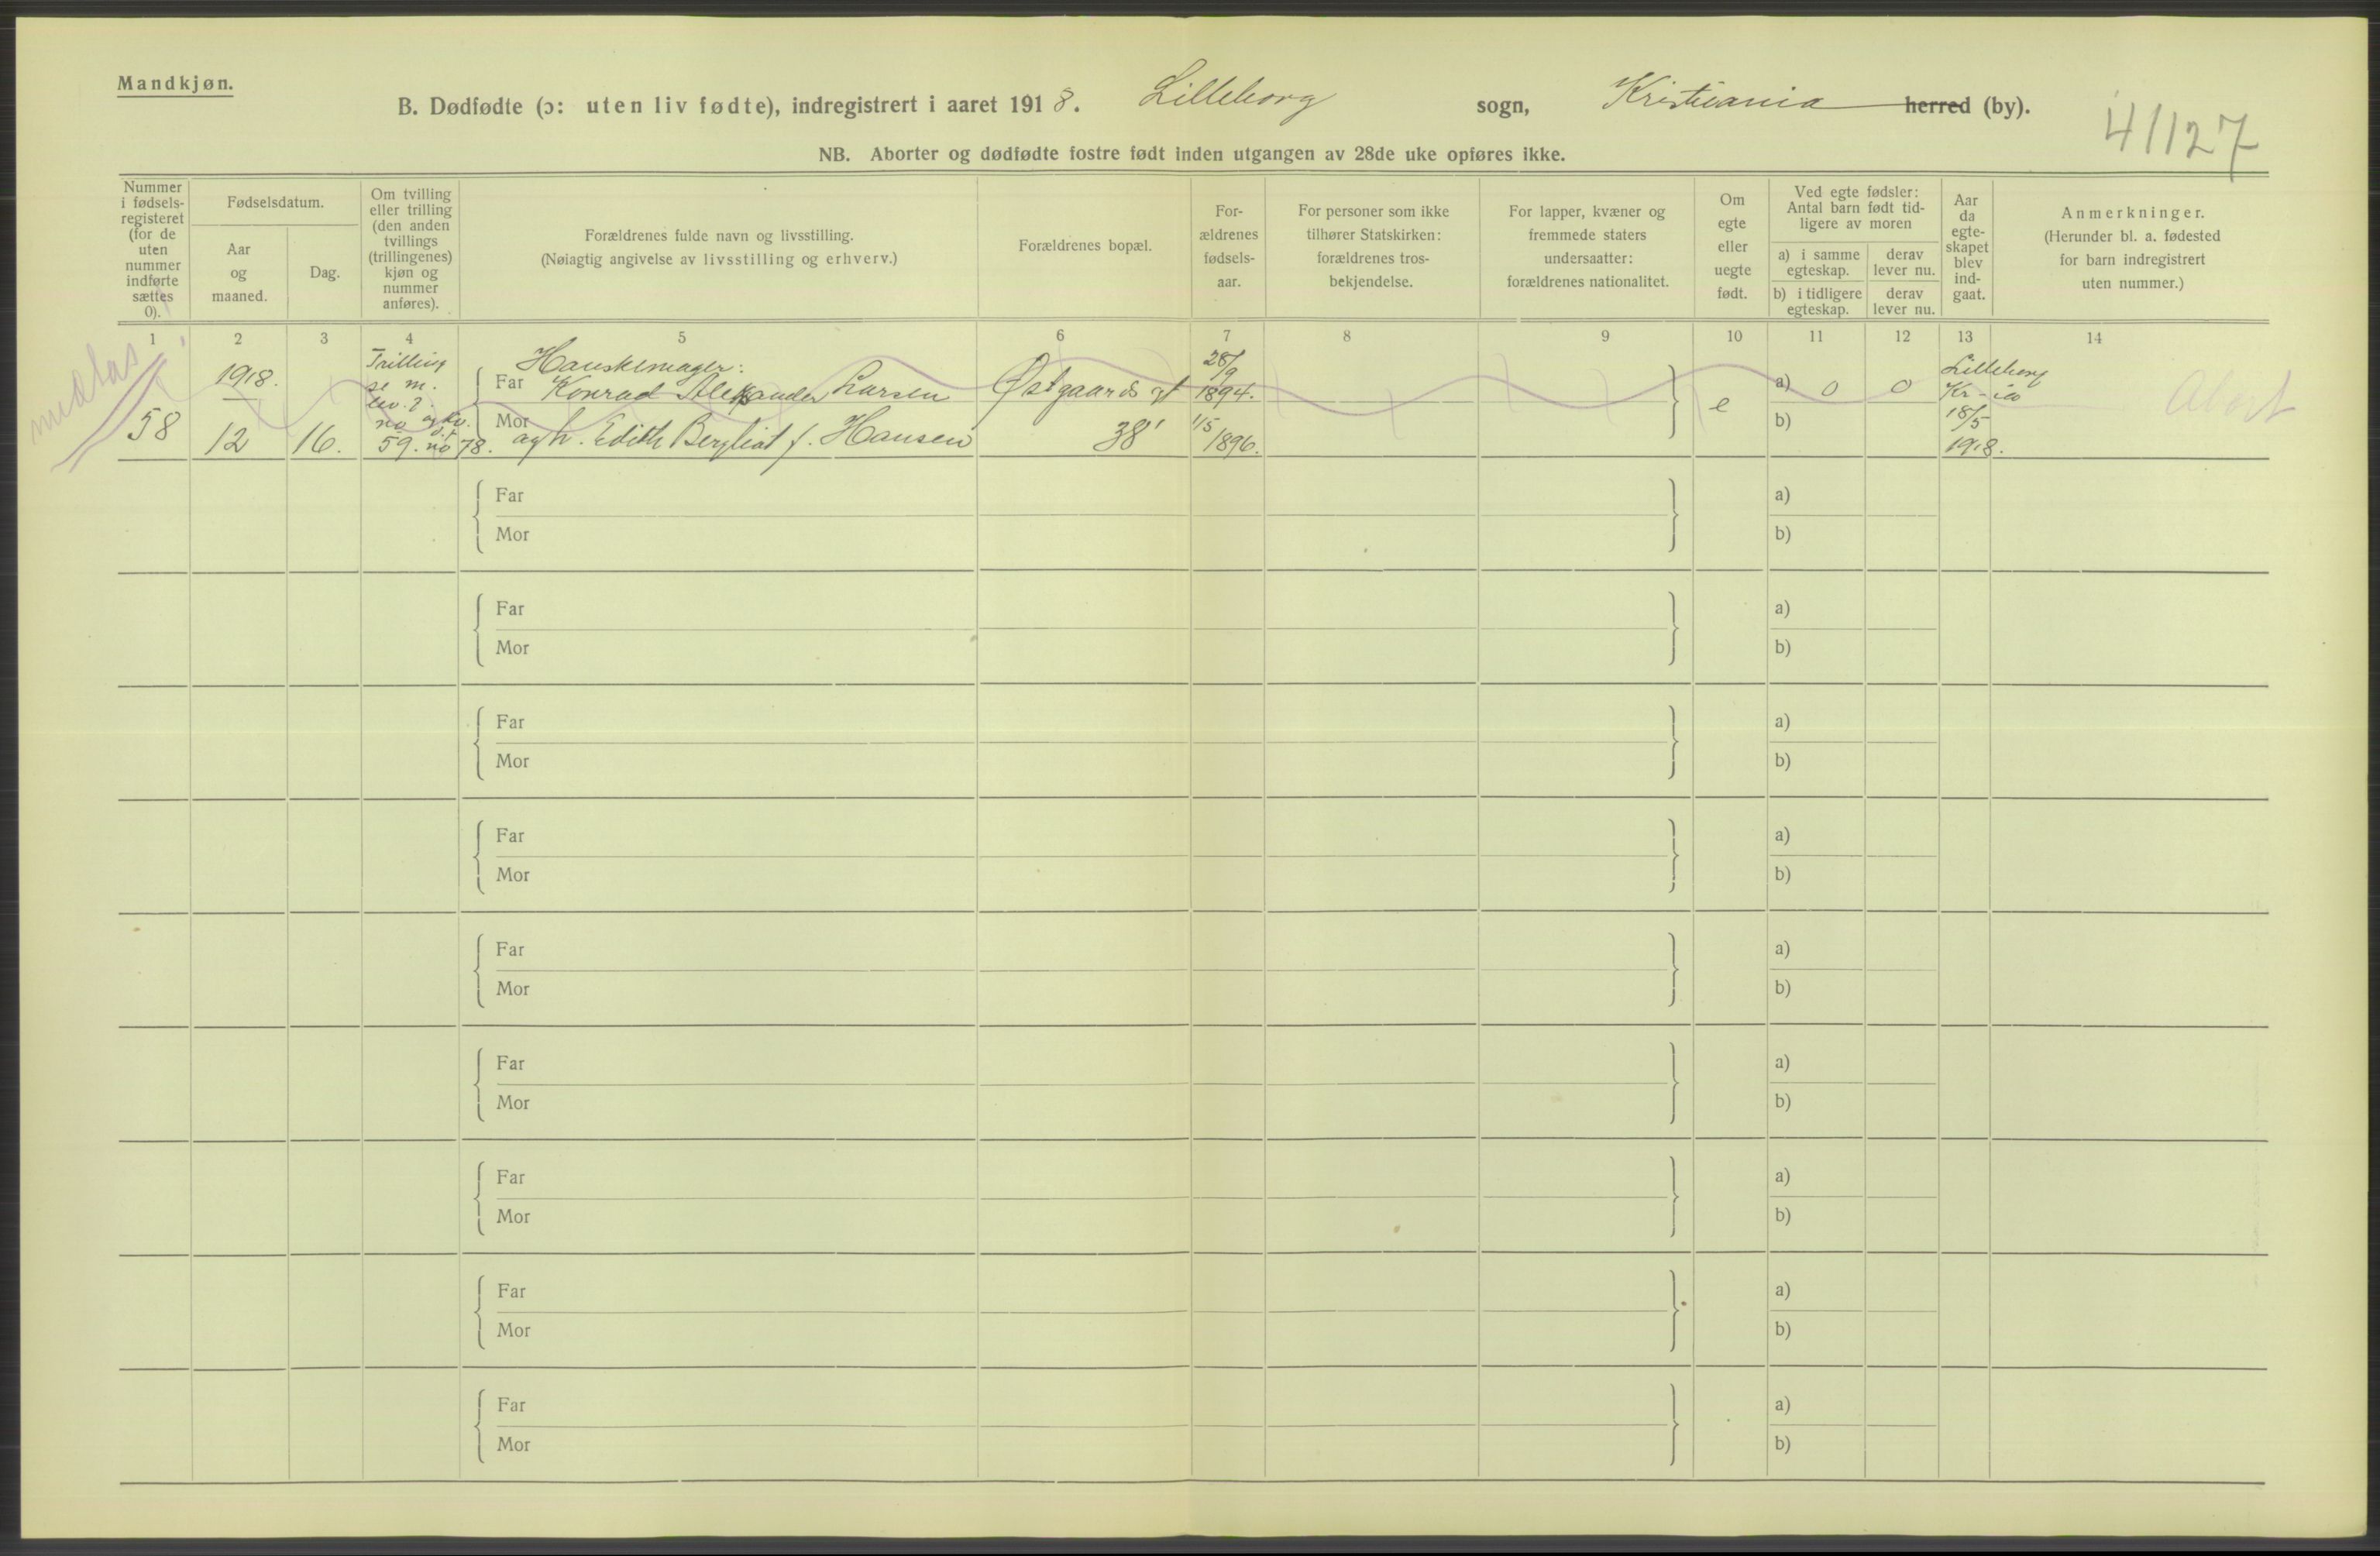 Mandkjøn.
B. Dødfødte (ɔ: uten liv fødte), indregistrert i aaret 1918. Lilleborg sogn, Kristiania herred (by).
41127
NB. Aborter og dødfødte fostre født inden utgangen av 28de uke opføres ikke.
Nummer i fødsels-registeret (for de uten nummer indførte sættes 0).
Fødselsdatum.
Aar og maaned.
Dag.
Om tvilling eller trilling (den anden tvillings (trillingenes) kjøn og nummer anføres).
Forældrenes fulde navn og livsstilling.
(Nøiagtig angivelse av livsstilling og erhverv.)
Forældrenes bopæl.
For-ældrenes fødsels-aar.
For personer som ikke tilhører Statskirken: forældrenes tros-bekjendelse.
For lapper, kvæner og fremmede staters undersaatter: forældrenes nationalitet.
Om egte eller uegte født.
Ved egte fødsler: Antal barn født tid-ligere av moren
a) i samme egteskap.
derav lever nu.
b) i tidligere egteskap.
derav lever nu.
Aar da egte-skapet blev ind-gaat.
Anmerkninger.
(Herunder bl. a. fødested for barn indregistrert uten nummer.)
1 2 3 4 5 6 7 8 9 10 11 12 13 14
58
1918.
12
16.
Trilling
se m.
lev.
no og kv.
59. no 78.
Hanskemager:
Far Konrad Alexander Larsen
Mor og h. Edith Bergliot f. Hansen
Østgaards gt
38
28/9
1894.
1/5
1896.
e
a) 0 0
b)
Lilleborg
Kr-ia
18/5
1918.
Abort
Far a)
Mor b)
Far a)
Mor b)
Far a)
Mor b)
Far a)
Mor b)
Far a)
Mor b)
Far a)
Mor b)
Far a)
Mor b)
Far a)
Mor b)
Far a)
Mor b)